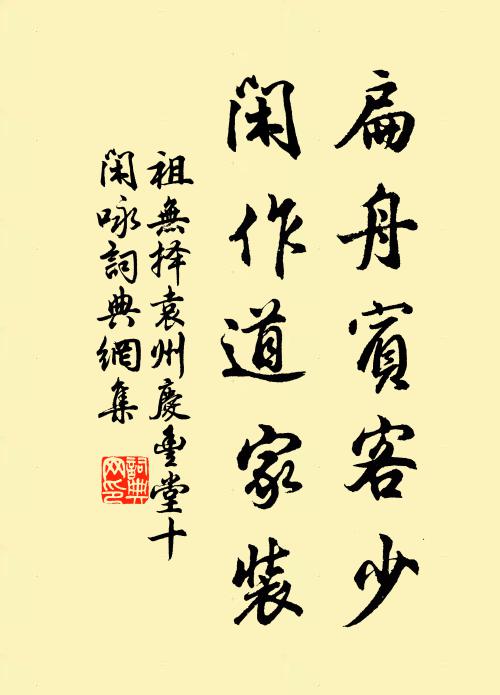 扁舟賓客少
閑作道家裝
祖無择袁州慶豐堂十
閑咏詞典網集
詞典网印